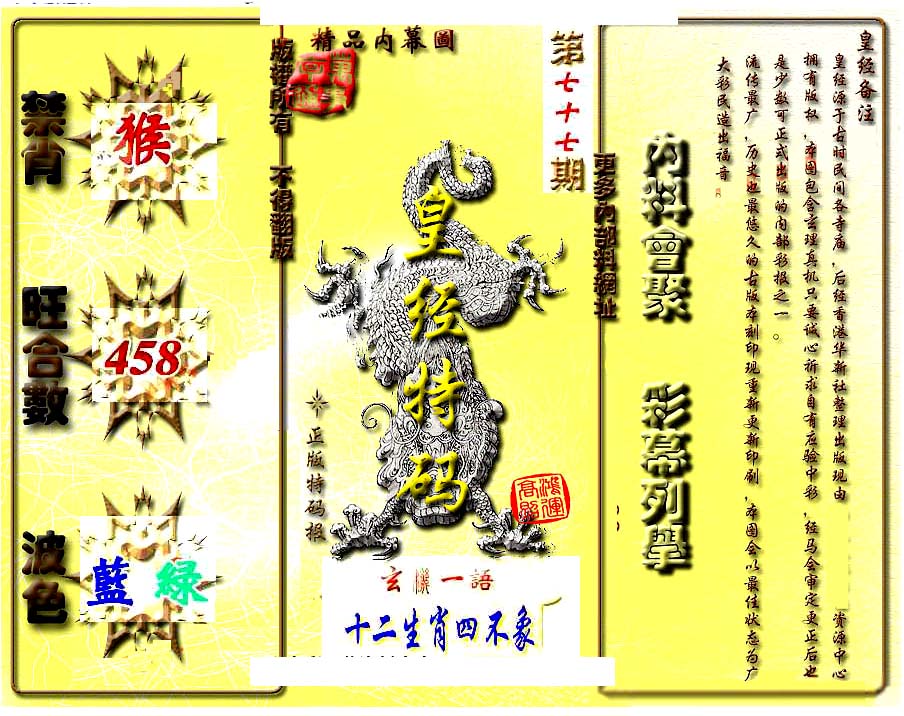 精品内幕圖
第七十七期
版權所有 不得翻版
更多内部料網址
禁肖
猴
旺合數
458
波色
藍 綠
皇经特码
正版特码报
鴻運高照
玄機一語
十二生肖四不象
内料會聚 彩幕列舉
皇经备注
皇经源于古时民间各寺庙，后经香港华新社整理出版现由 资源中心
拥有版权，本图包含玄理真机只要诚心祈求自有应验中彩，经马会审定更正后也
是少数可正式出版的内部彩报之一。
流传最广，历史也最悠久的古版本刻印现重新更新印刷，本图会以最佳状态为广
大彩民造出福音